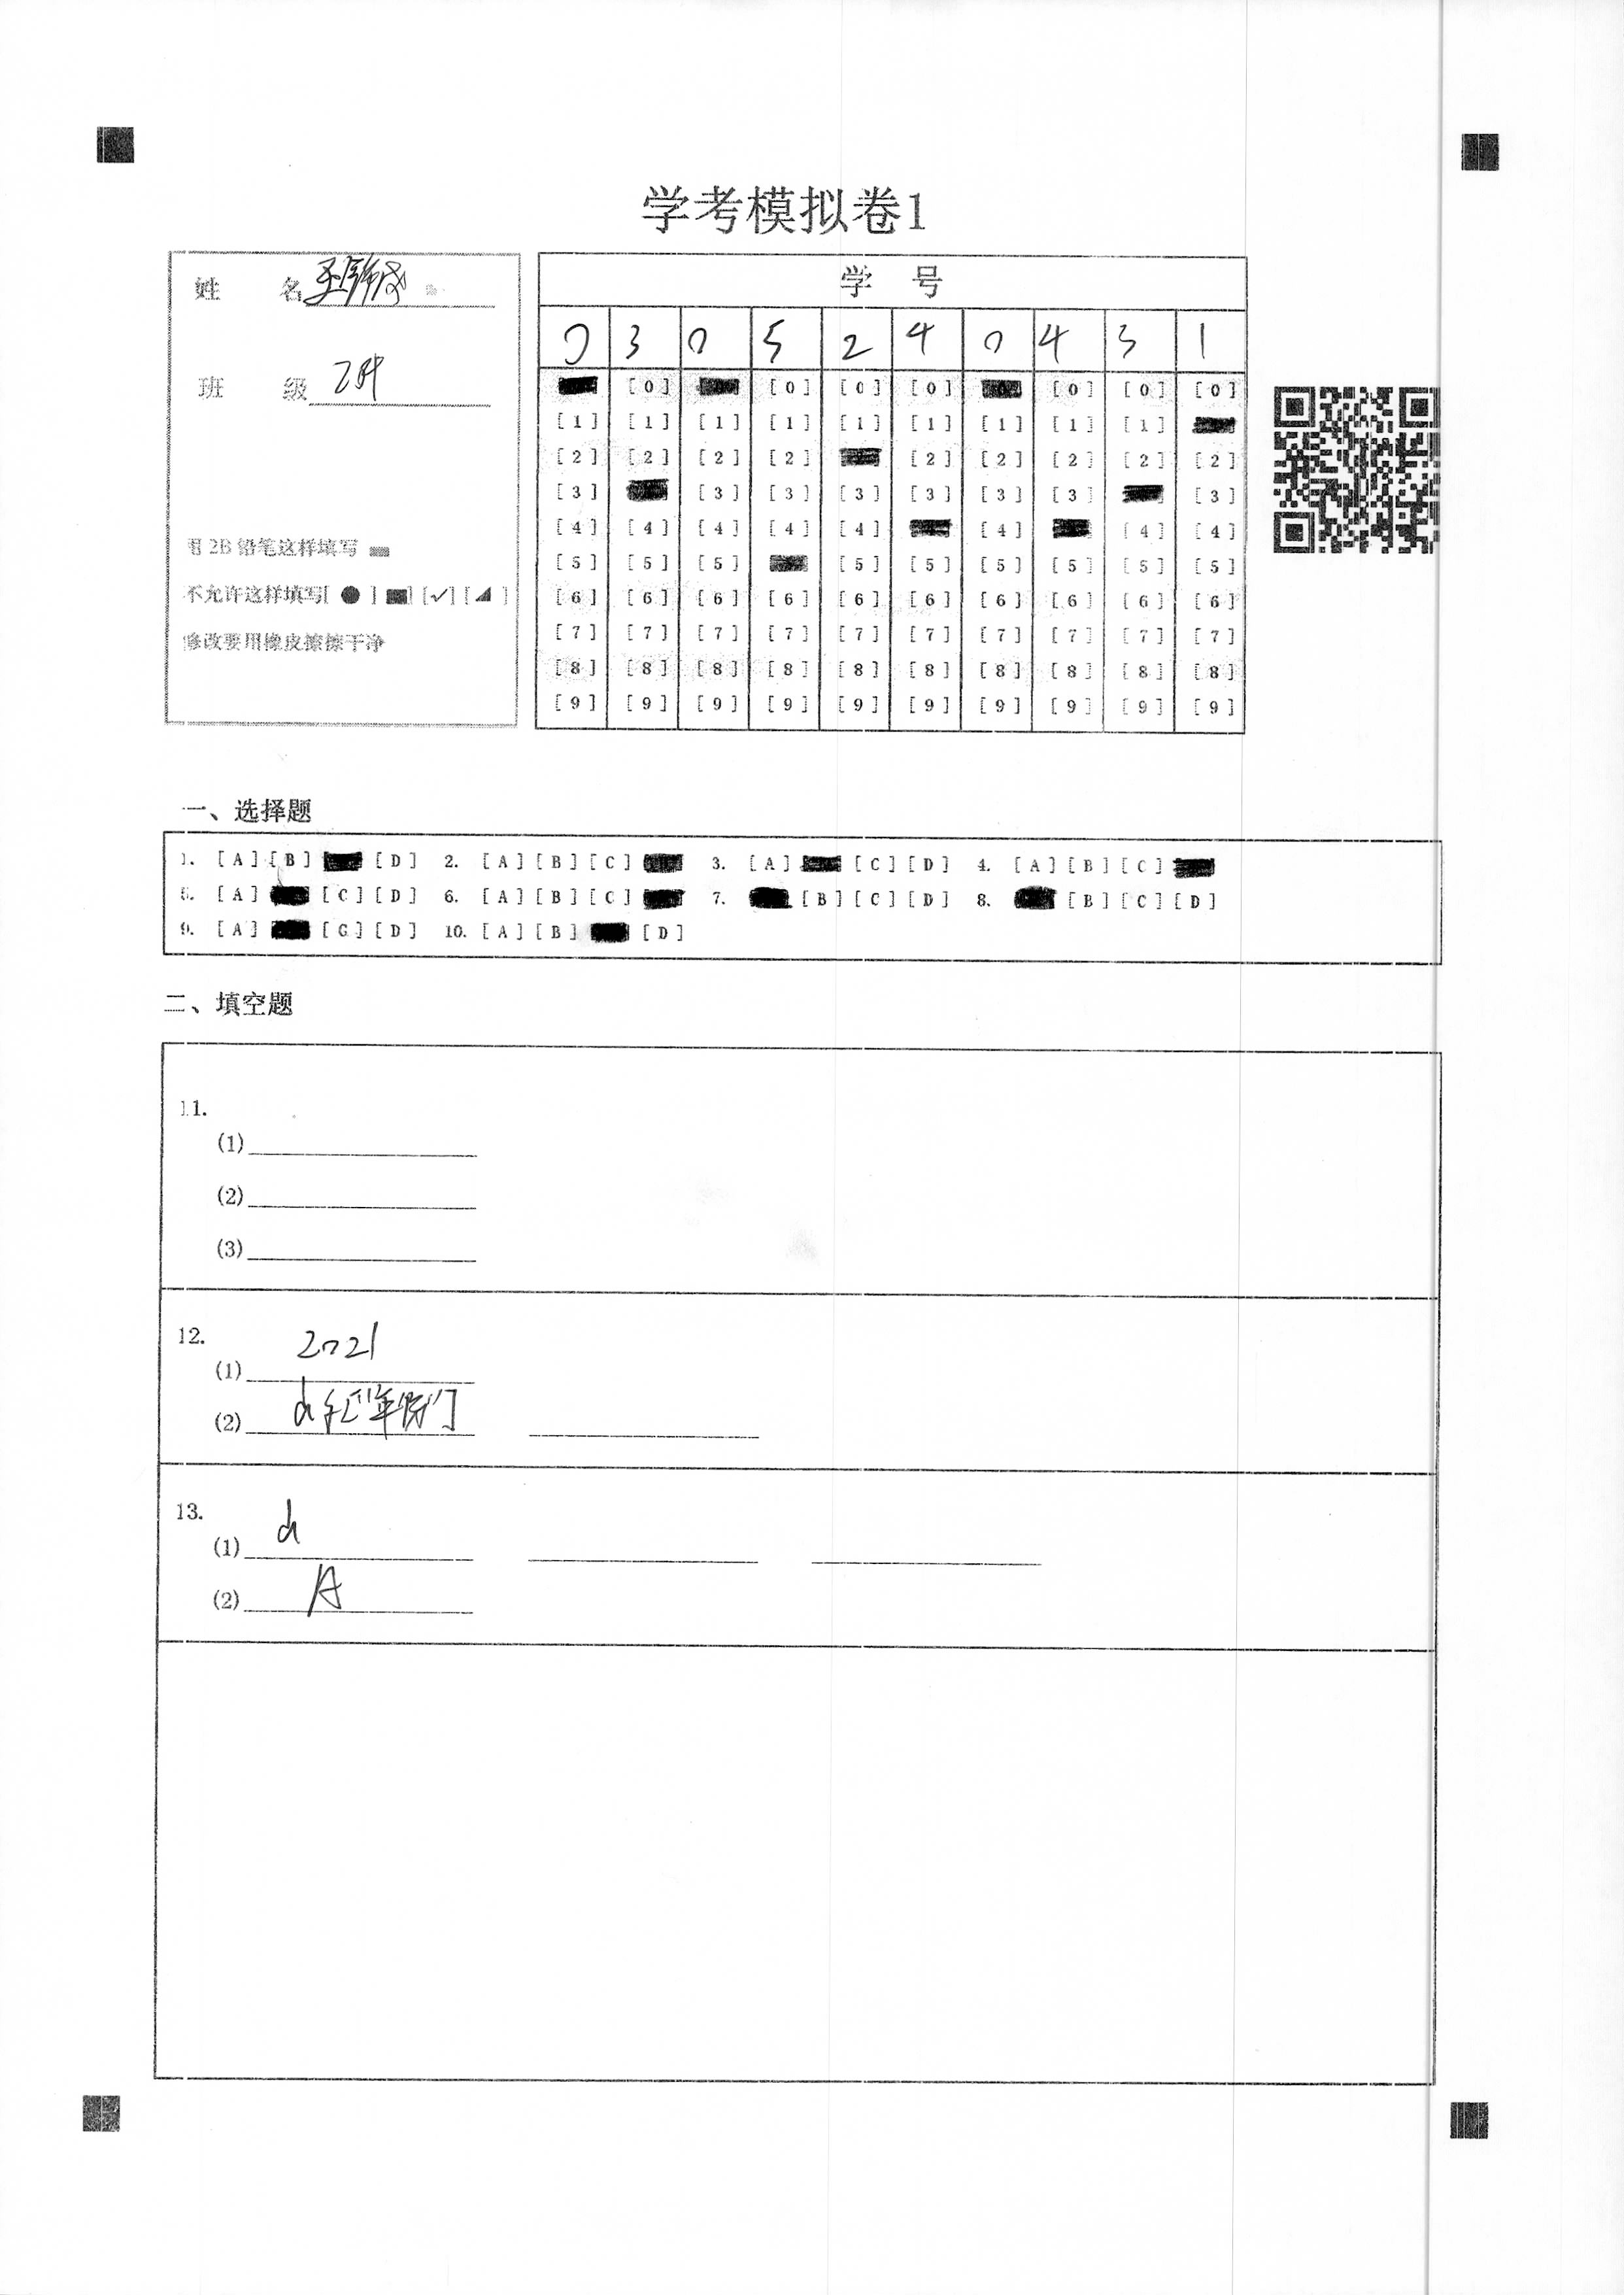 学考模拟卷1
姓 名
班 级 204
用 2B 铅笔这样填写
不允许这样填写[ ● ] [ ] [✓] [◢ ]
修改要用橡皮擦擦干净
学 号
0 3 0 5 2 4 0 4 3 1
[0] [0] [0] [0] [0] [0] [0]
[1] [1] [1] [1] [1] [1] [1] [1] [1]
[2] [2] [2] [2] [2] [2] [2] [2] [2]
[3] [3] [3] [3] [3] [3] [3] [3]
[4] [4] [4] [4] [4] [4] [4] [4]
[5] [5] [5] [5] [5] [5] [5] [5] [5]
[6] [6] [6] [6] [6] [6] [6] [6] [6] [6]
[7] [7] [7] [7] [7] [7] [7] [7] [7] [7]
[8] [8] [8] [8] [8] [8] [8] [8] [8] [8]
[9] [9] [9] [9] [9] [9] [9] [9] [9] [9]
一、选择题
1. [A] [B] [D] 2. [A] [B] [C] 3. [A] [C] [D] 4. [A] [B] [C]
5. [A] [C] [D] 6. [A] [B] [C] 7. [B] [C] [D] 8. [B] [C] [D]
9. [A] [C] [D] 10. [A] [B] [D]
二、填空题
11.
(1)
(2)
(3)
12.
(1) 2021
(2) df["年份"]
13.
(1) d
(2) A